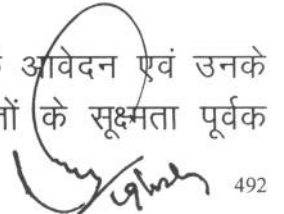 आवेदन एवं उनके
के सूक्ष्मता पूर्वक
492